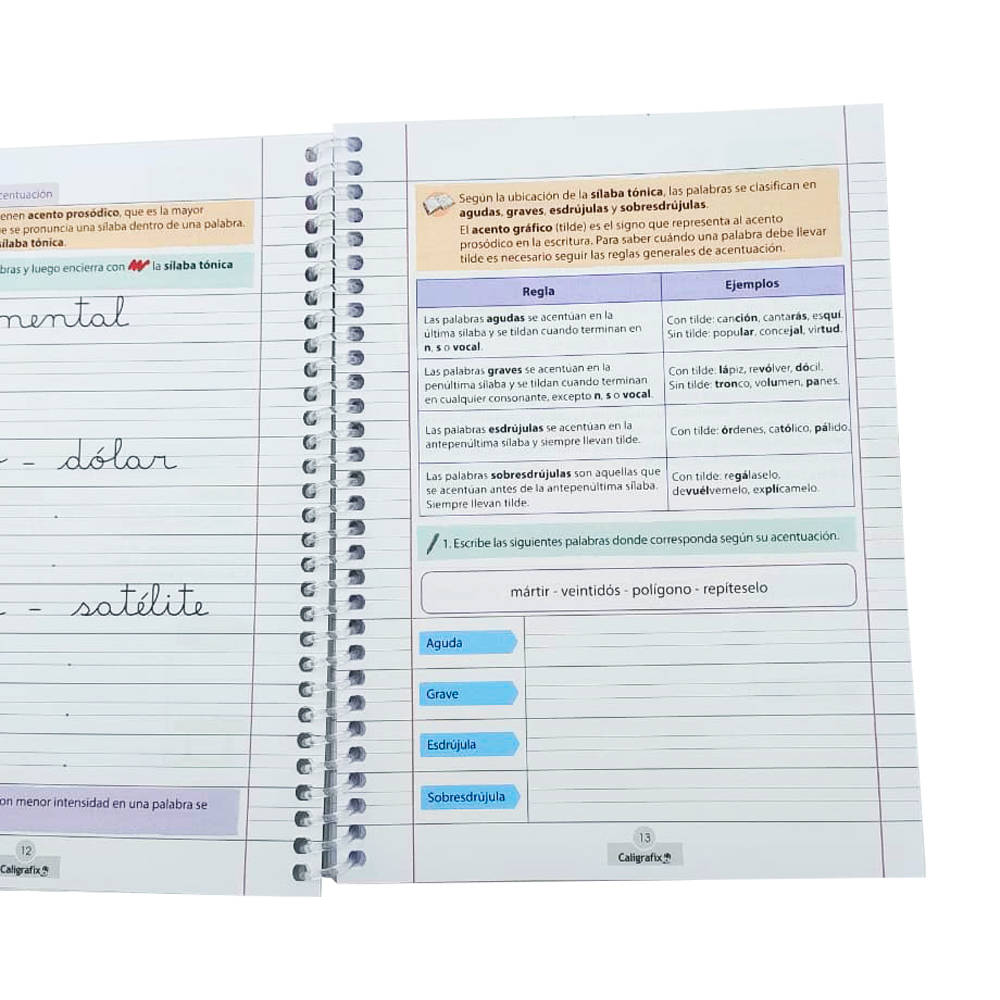 centuación
enen acento prosódico, que es la mayor
e se pronuncia una sílaba dentro de una palabra.
sílaba tónica.
bras y luego encierra con la sílaba tónica
mental
- dólar
- satélite
on menor intensidad en una palabra se
12
Caligrafix
Según la ubicación de la sílaba tónica, las palabras se clasifican en
agudas, graves, esdrújulas y sobresdrújulas.
El acento gráfico (tilde) es el signo que representa al acento
prosódico en la escritura. Para saber cuándo una palabra debe llevar
tilde es necesario seguir las reglas generales de acentuación.
Regla
Ejemplos
Las palabras agudas se acentúan en la
última sílaba y se tildan cuando terminan en
n, s o vocal.
Con tilde: canción, cantarás, esquí.
Sin tilde: popular, concejal, virtud.
Las palabras graves se acentúan en la
penúltima sílaba y se tildan cuando terminan
en cualquier consonante, excepto n, s o vocal.
Con tilde: lápiz, revólver, dócil.
Sin tilde: tronco, volumen, panes.
Las palabras esdrújulas se acentúan en la
antepenúltima sílaba y siempre llevan tilde.
Con tilde: órdenes, católico, pálido.
Las palabras sobresdrújulas son aquellas que
se acentúan antes de la antepenúltima sílaba.
Siempre llevan tilde.
Con tilde: regálaselo,
devuélvemelo, explícamelo.
1. Escribe las siguientes palabras donde corresponda según su acentuación.
mártir - veintidós - polígono - repíteselo
Aguda
Grave
Esdrújula
Sobresdrújula
13
Caligrafix